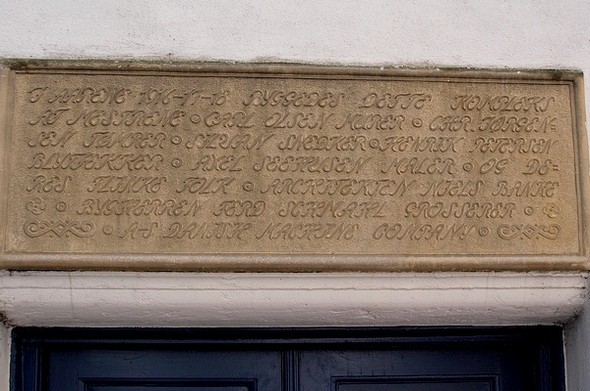 I AARENE 1916-17-18 BYGGEDES DETTE KOMPLEKS
AF MESTRENE ∘ CARL OLSEN MURER ∘ CHR. JØRGEN-
SEN TØMRER ∘ SNEDKER ∘ HENRIK PETERSEN
BLYTÆKKER ∘ AXEL SEEHUSEN MALER ∘ OG DE-
RES FLINKE FOLK ∘ ARCHITEKTEN NIELS BANKE
∘ BYGHERREN FERD SCHMAHL GROSSERER ∘
∘ A-S DANISH MACHINE COMPANY ∘